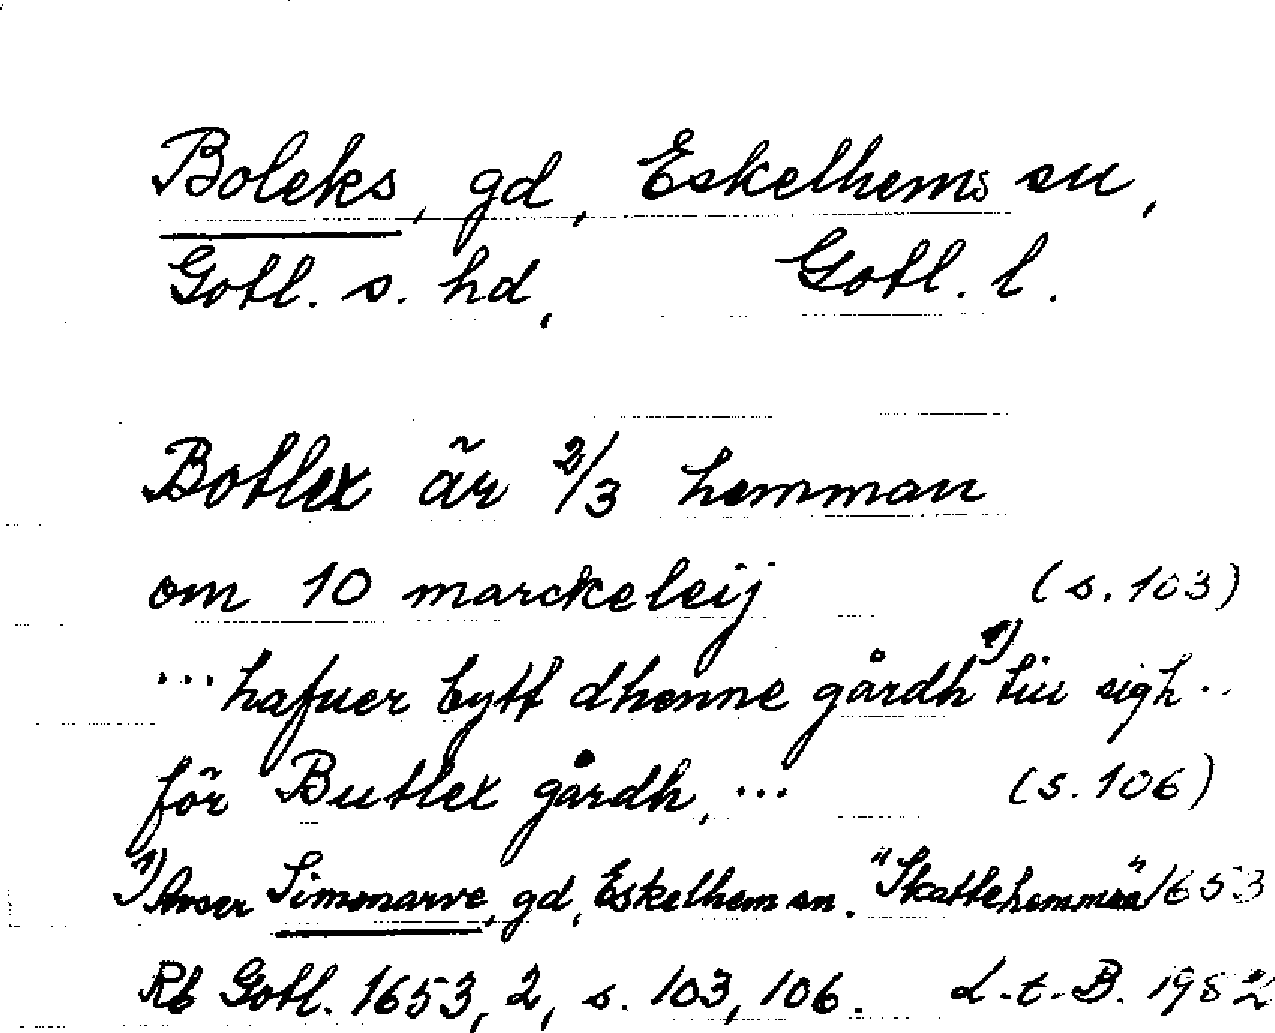 Boleks, gd, Eskelhems sn,
Gotl. s. hd, Gotl. l.
Botlex är 2/3 hemman
om 10 marckeleij (s. 103)
... hafuer bytt dhenne gårdh 1) till sigh ..
för Butlex gårdh, ... (s. 106)
1) Avser Simonarve, gd, Eskelhem sn. "Skattehemman" 1653
Rb Gotl. 1653, 2, s. 103, 106. L-t-B. 1982